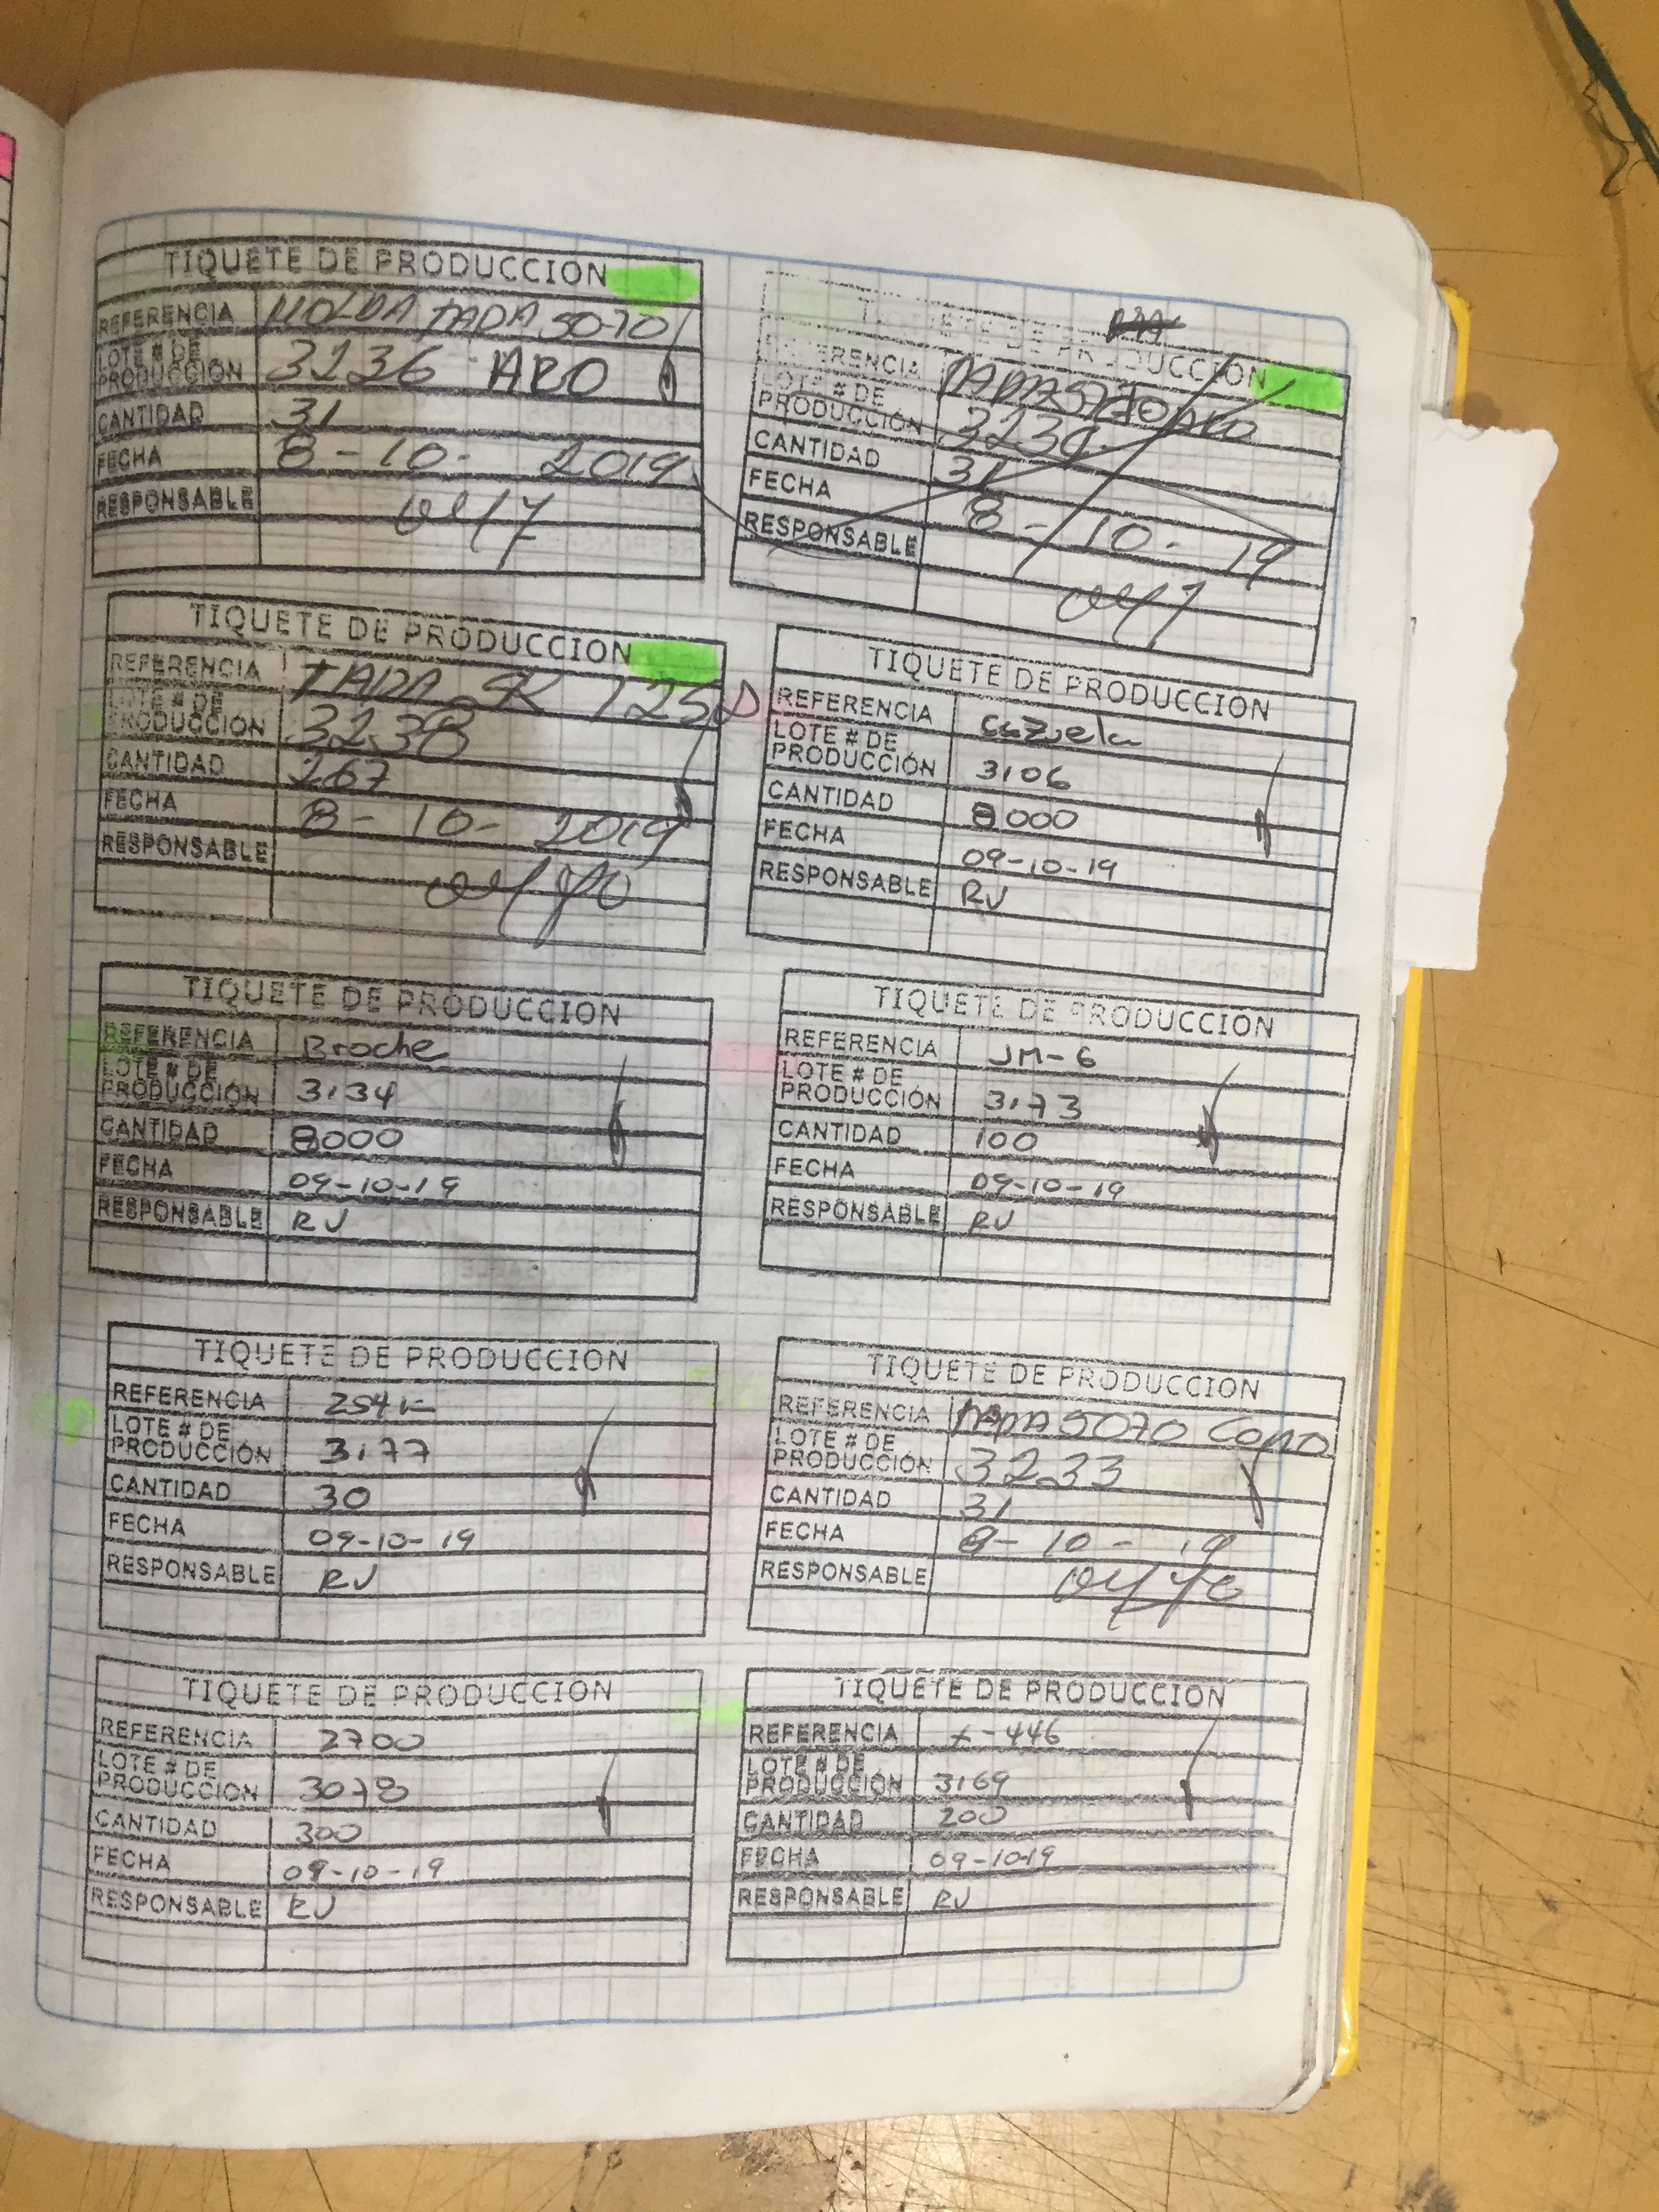 TIQUETE DE PRODUCCION
REFERENCIA TADA 5070
LOTE # DE PRODUCCIÓN 3236 ARO
CANTIDAD 31
FECHA 8-10-2019
RESPONSABLE
TIQUETE DE PRODUCCION
REFERENCIA
LOTE # DE PRODUCCIÓN
CANTIDAD 31
FECHA 8-10-19
RESPONSABLE
TIQUETE DE PRODUCCION
REFERENCIA TADA SK 1250
LOTE # DE PRODUCCIÓN 3238
CANTIDAD 267
FECHA 8-10-2019
RESPONSABLE
TIQUETE DE PRODUCCION
REFERENCIA Cazuela
LOTE # DE PRODUCCIÓN 3106
CANTIDAD 8000
FECHA 09-10-19
RESPONSABLE RV
TIQUETE DE PRODUCCION
REFERENCIA Broche
LOTE # DE PRODUCCIÓN 3134
CANTIDAD 8000
FECHA 09-10-19
RESPONSABLE RV
TIQUETE DE PRODUCCION
REFERENCIA JM-6
LOTE # DE PRODUCCIÓN 3173
CANTIDAD 100
FECHA 09-10-19
RESPONSABLE RV
TIQUETE DE PRODUCCION
REFERENCIA
LOTE # DE PRODUCCIÓN 3177
CANTIDAD 30
FECHA 09-10-19
RESPONSABLE RV
TIQUETE DE PRODUCCION
REFERENCIA TAPA 5070 Cono
LOTE # DE PRODUCCIÓN 3233
CANTIDAD 31
FECHA 8-10-19
RESPONSABLE
TIQUETE DE PRODUCCION
REFERENCIA 2700
LOTE # DE PRODUCCIÓN 3078
CANTIDAD 300
FECHA 09-10-19
RESPONSABLE RV
TIQUETE DE PRODUCCION
REFERENCIA x-446
LOTE # DE PRODUCCIÓN 3169
CANTIDAD 200
FECHA 09-10-19
RESPONSABLE RV